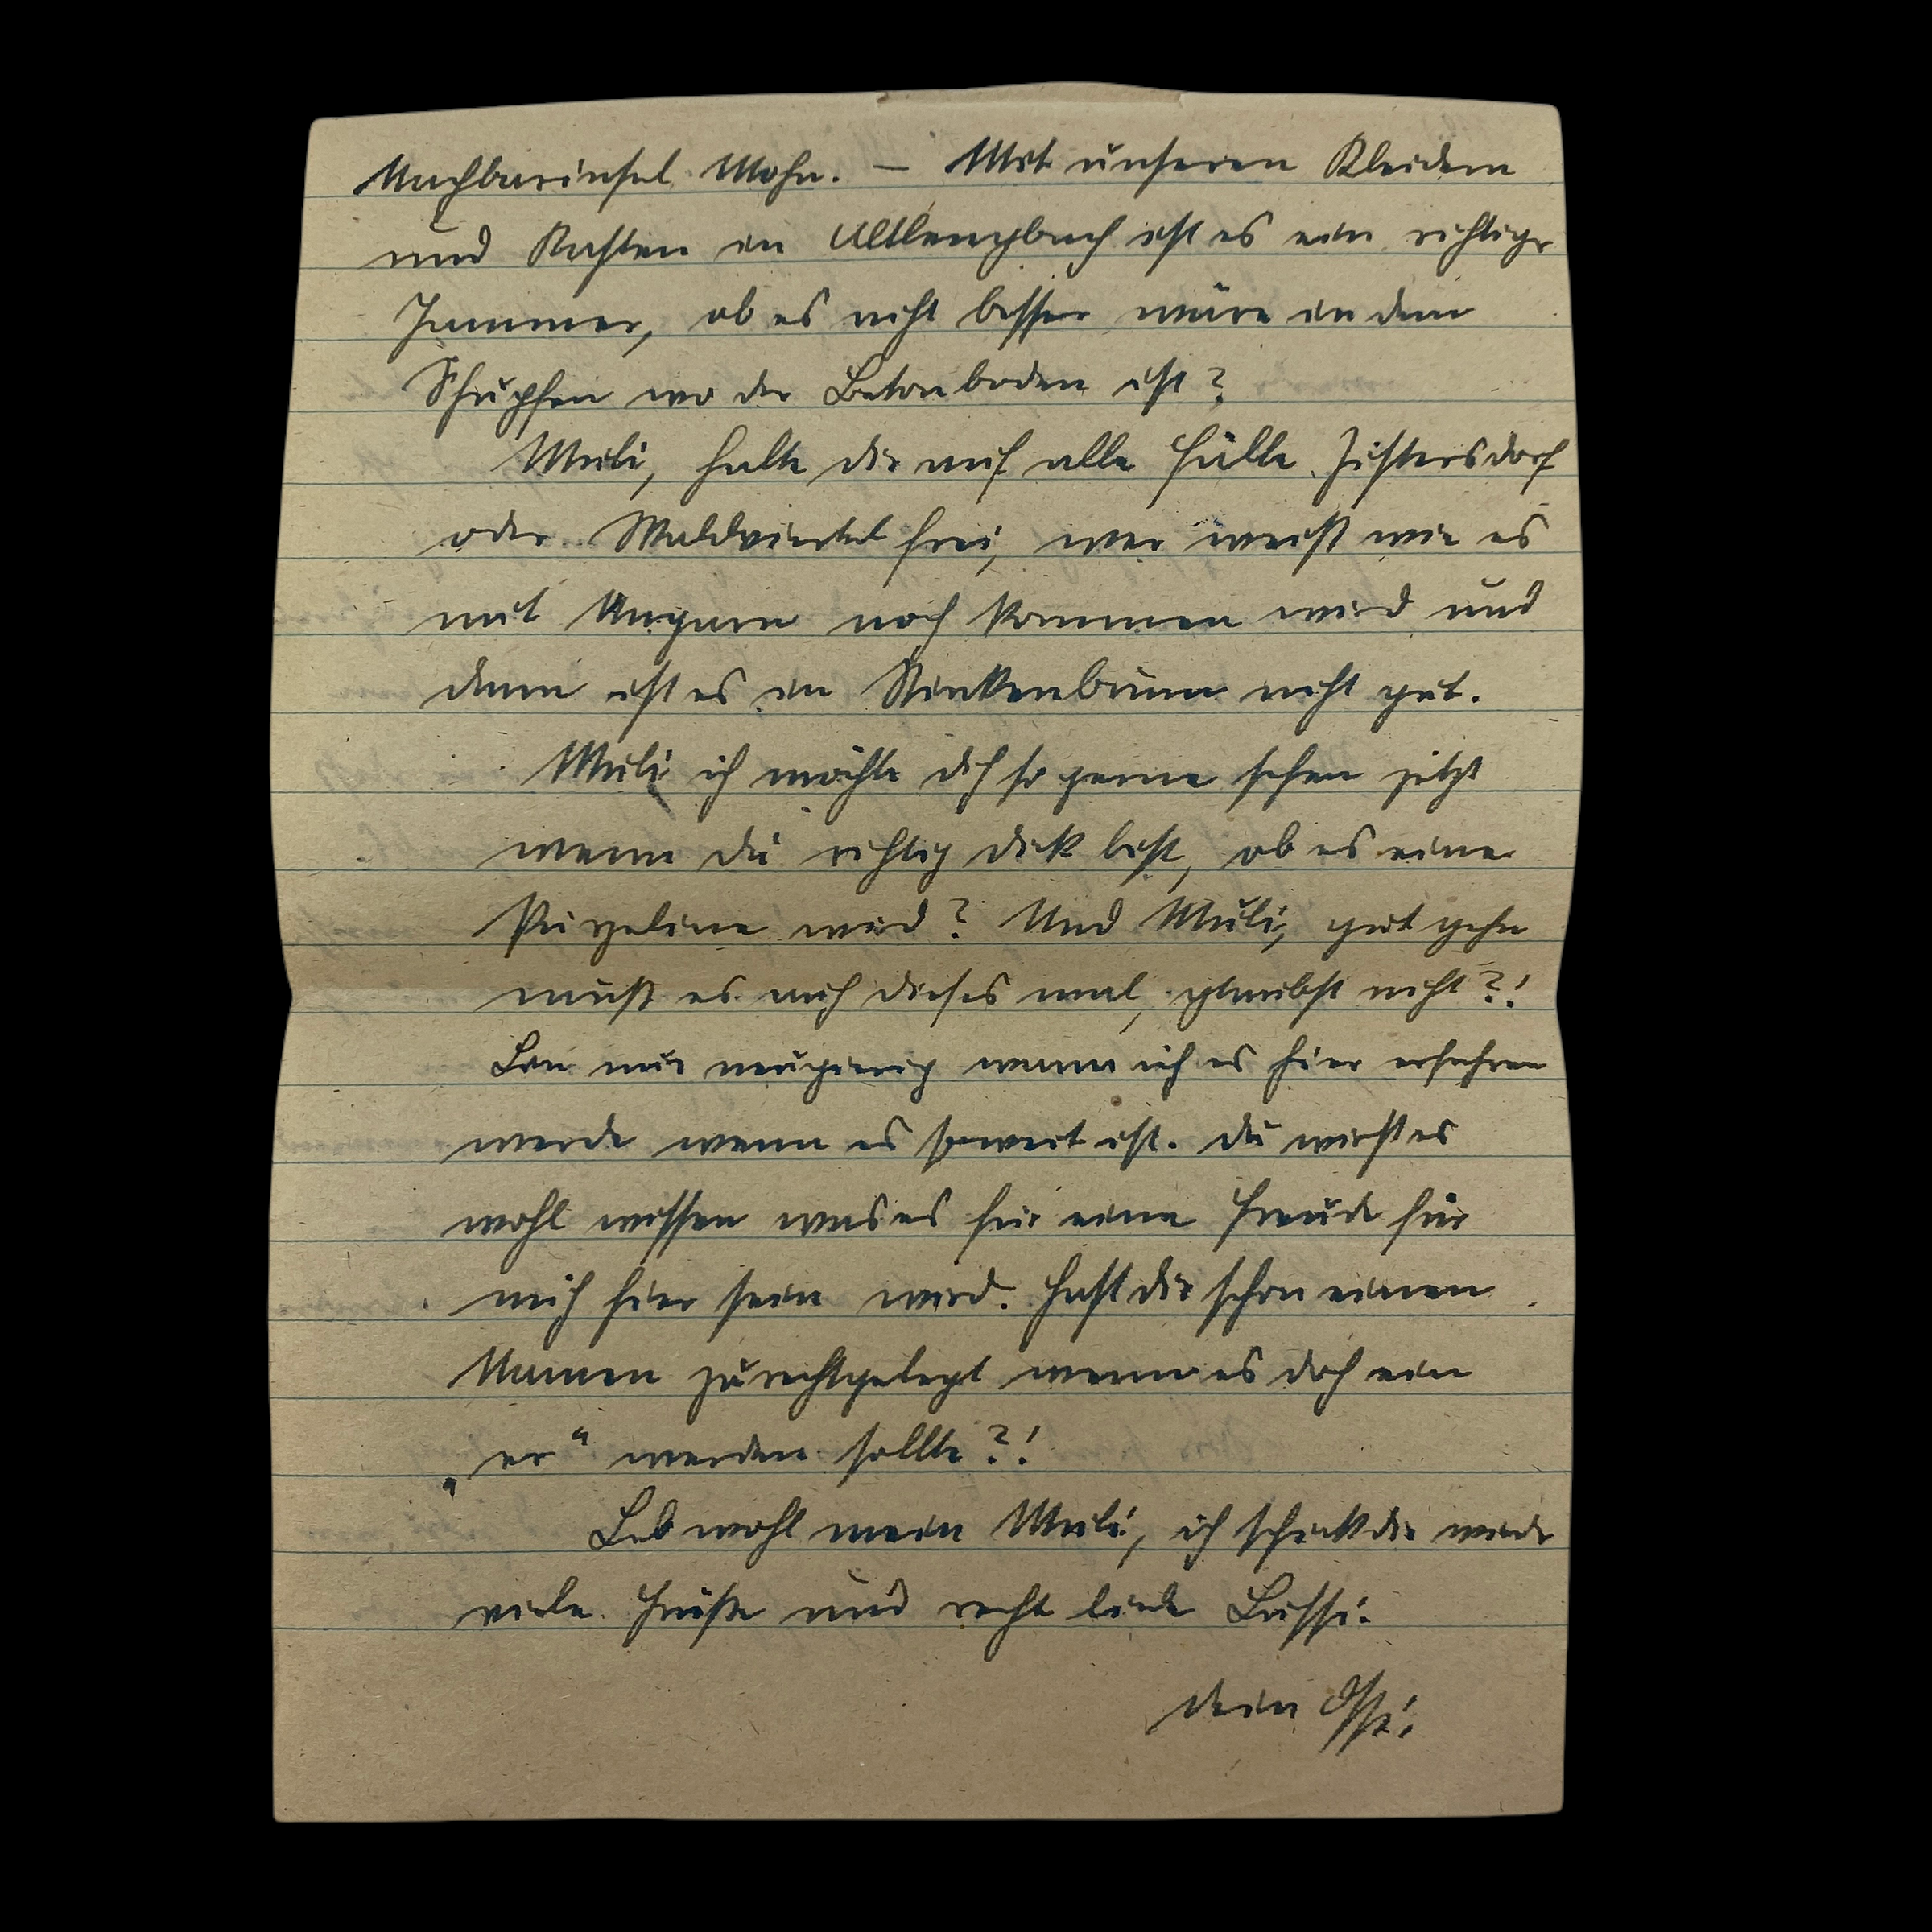 Nachbarinsel Mohn. — Mit unseren Kleidern
und Kasten in Altlengbach ist es ein richtiger
Jammer, ob es nicht besser wäre in dem
Schupfen wo der Betonboden ist?
Muli, halte dir auf alle Fälle Zistersdorf
oder Waldviertel frei, wer weiß wie es
mit Ungarn noch kommen wird und
dann ist es in Stinkenbrunn nicht gut.
Muli ich möchte dich so gerne sehen jetzt
wenn du richtig dick bist, ob es eine
wird? Und Muli, gut gehn
muß es auch dieses mal, glaubst nicht?!
Bin nur neugierig wann ich es hier erfahren
werde wenn es soweit ist. Du wirst es
wohl wissen was es für eine Freude für
mich hier sein wird. Hast dir schon einen
Namen zurechtgelegt wenn es doch ein
„er“ werden sollte?!
Leb wohl mein Muli, ich schick dir wieder
viele Grüße und recht liebe Bussi.
Dein Ossi.